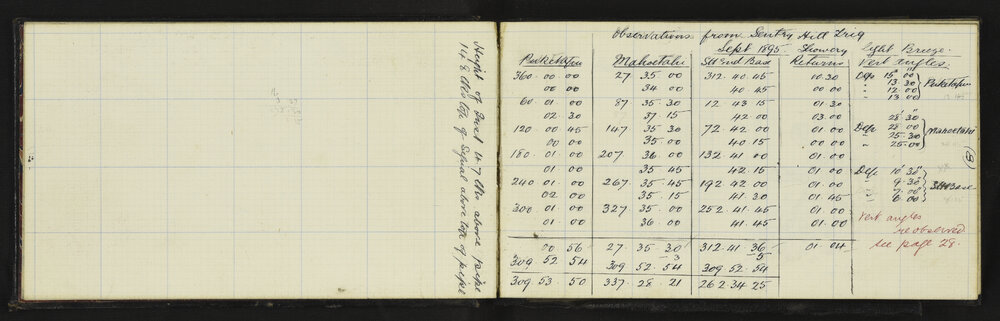 Height of Inst 4.7 lks above pwipe
14.8 lks top of Signal above top of pipe
Observations from Sentry Hill Trig
Sept 1895. Showery Light Breeze.
Puketapu Mahoetahi Sth End Base Returns Vert Angles
360. 00. 00 27. 35. 00 312. 40. 45 10 30 Dep 15' 00"
00 00 34. 00 40. 45 00. 00 " 13. 30 Puketapu
" 12 00
60 01. 00 87 35. 30 12. 43. 15 01. 30 " 13 00
02. 30 37. 15 42. 00 03. 00 28' 30"
120. 00 45 147 35. 30 72. 42. 00 01. 00 Dep 28' 00 Mahoetahi
00 00 35. 00 40. 15 00. 00 " 25. 30
180. 01. 00 207 36. 00 132. 41. 00 01. 00 " 25. 00
01. 00 35 45 42. 15 01. 00 Dep 10' 30"
240 01. 00 267. 35. 45 192 42. 00 01. 00 " 9. 30 Sth Base
02. 00 35. 15 41. 30 01. 45 " 7. 00
300 01. 00 327 35. 00 252. 41. 45 01. 00 " 6. 00
01. 00 36. 00 41. 45 01. 00 Vert angles
re observed
see page 28.
00 56 27. 35. 30 312. 41. 36 01. 04
3 5
309. 52. 54 309 52. 54 309 52. 54
309. 53. 50 337. 28. 21 262 34. 25
8